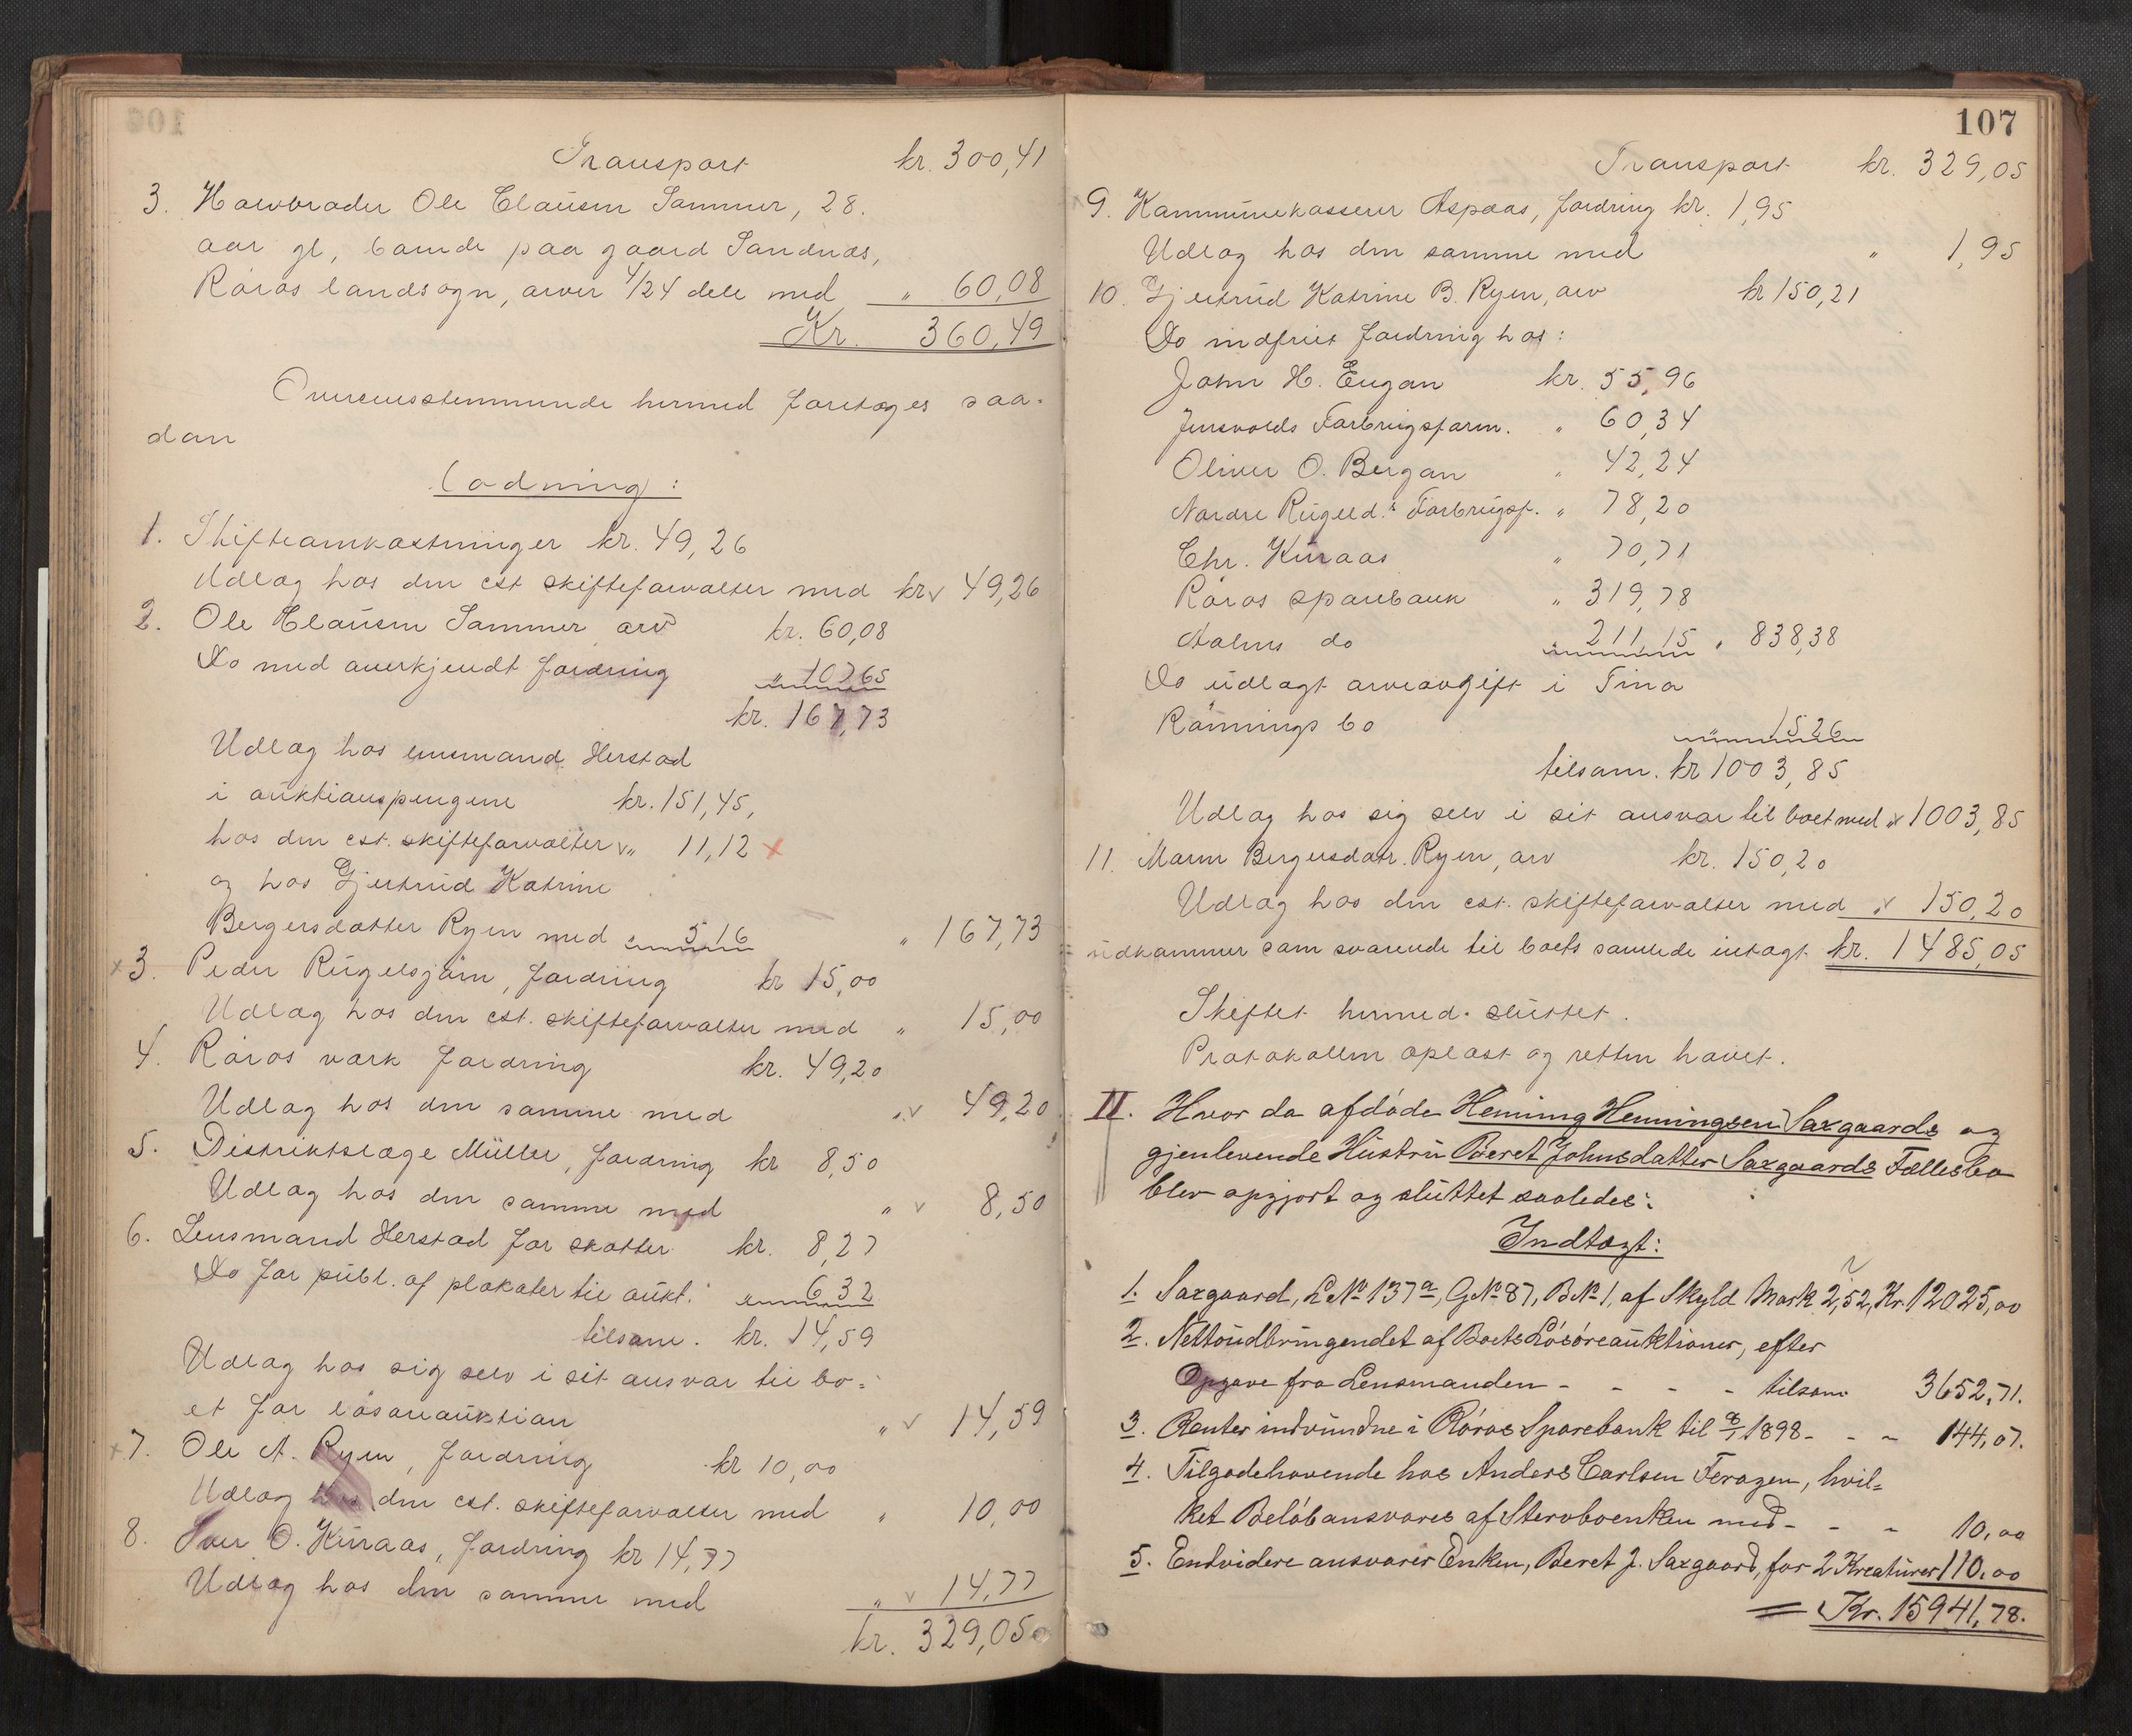 Transport kr. 300,41
3. Halvbroder Ole Clausen Sammer, 28.
aar gl, boende paa gaard Sandnæs,
Røros landsogn, arver 4/24 dele med " 60,08
Kr. 360,49
Overensstemmende hermed foretoges saa-
dan
Lodning:
1. Skifteomkostninger kr. 49,26
Udlæg hos den cst skifteforvalter med kr v 49,26
2. Ole Clausen Sammer arv kr. 60,08
Do med anerkjendt fordring " 107,65
kr. 167,73
Udlæg hos lensmand Herstad
i auktionspengene kr. 151,45,
hos den cst. skifteforvalter v " 11,12 x
og hos Gjertrud Katrine
Bergersdatter Ryen med " 5,16 " 167,73
x 3. Peder Rugelsjøen, fordring kr 15,00
Udlæg hos den cst. skifteforvalter med " 15,00
4. Røros værk fordring kr. 49,20
Udlæg hos den samme med " v 49,20
5. Distriktslæge Müller, fordring kr 8,50
Udlæg hos den samme med " v 8,50
6. Lensmand Herstad for skatter kr. 8,27
Do for publ. af plakater til aukt. " 6,32
tilsam. kr. 14,59
Udlæg hos sig selv i sit ansvar til bo-
et for løsøreauktion " v 14,59
x 7. Ole A. Ryen, fordring kr 10,00
Udlæg hos den cst. skifteforvalter med " 10,00
8. Iver O. Kuraas, fordring kr 14,77
Udlæg hos den samme med " v 14,77
kr. 329,05
107
Transport kr. 329,05
9. Kommunekasserer Aspaas, fordring kr. 1,95
Udlæg hos den samme med " 1,95
10. Gjertrud Katrine B. Ryen, arv kr 150,21
Do indfriet fordring hos:
John H. Engan kr. 55,96
Jensvolds Forbrugsforen. " 60,34
Oliver O. Bergan " 42,24
Nordre Rugeld.s Forbrugsf. " 78,20
Chr. Kuraas " 70,71
Røros sparebank " 319,78
Aalens do " 211,15 " 838,38
Do udlagt arveavgift i Tina
Rønnings bo " 15,26
tilsam. kr 1003,85
Udlæg hos sig selv i sit ansvar til boet med " v 1003,85
11. Maren Bergersdatr. Ryen, arv kr. 150,20
Udlæg hos den cst. skifteforvalter med " v 150,20
udkommer som svarende til boets samlede indtægt kr. 1485,05
Skiftet hermed sluttet.
Protokollen oplæst og retten hævet.
II. Hvor da afdøde Henning Henningsen Saxgaards og
gjenlevende Hustru Beret Johnsdatter Saxgaards Fællesbo
blev opgjort og sluttet saaledes:
Indtægt:
1. Saxgaard, L№ 137a, G№ 87, B№ 1, af Skyld Mark 2,52, Kr. 12025,00
2. Nettoudbringendet af Boets Løsøreauktioner, efter
Opgave fra Lensmanden - - - - tilsam 3652,71.
3. Renter indvundne i Røros Sparebank til 8/1 1898 - - - 144,07.
4. Tilgodehavende hos Anders Carlsen Feragen, hvil-
ket Beløb ansvares af Stervboenken med - - - 10,00
5. Endvidere ansvarer Enken, Beret J. Saxgaard, for 2 Kreaturer 110,00
= Kr. 15941,78.